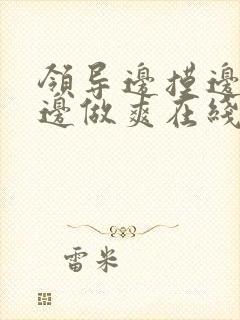 领导邊摸邊
邊做爽在綫
雷米